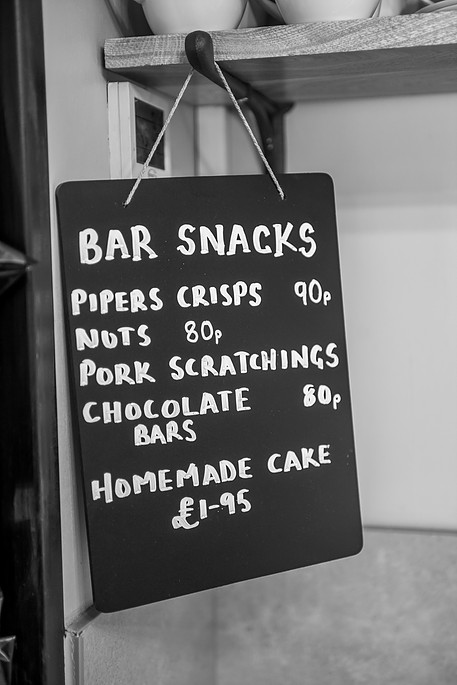 BAR SNACKS
PIPERS CRISPS 90p
NUTS 80p
PORK SCRATCHINGS
CHOCOLATE 80p
BARS
HOMEMADE CAKE
£1-95